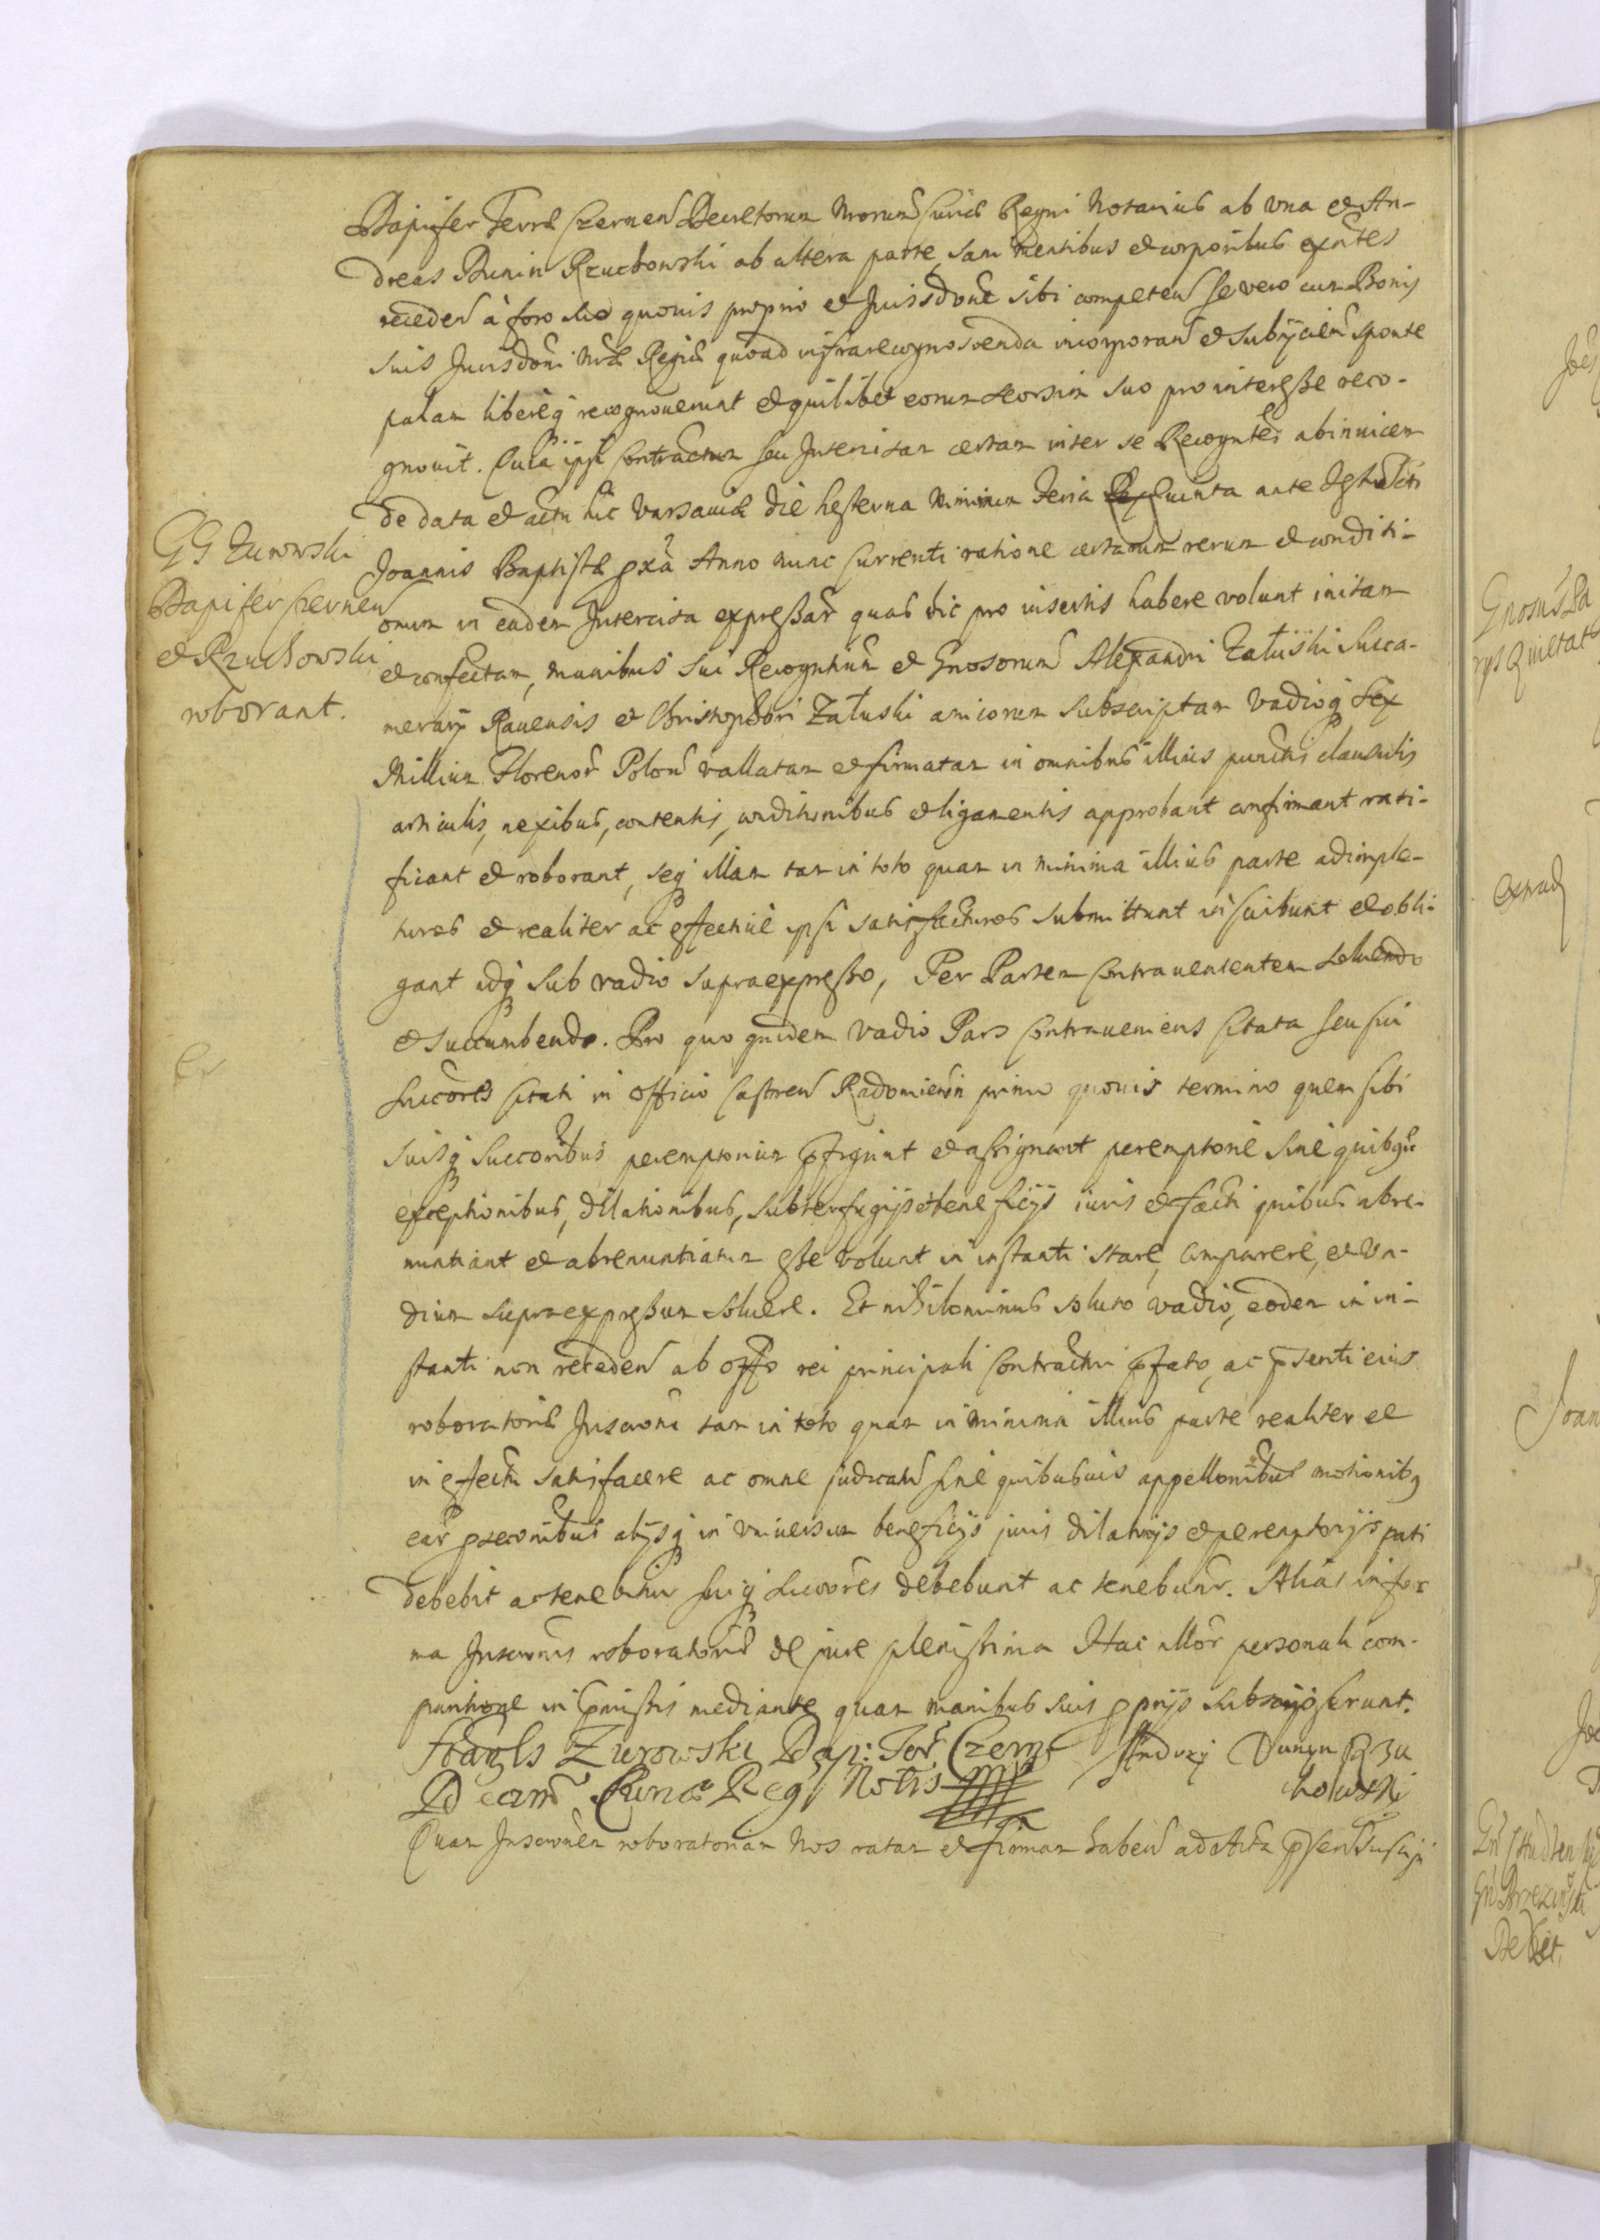 Dapifer Terræ Czernen Decretorum Nrorum Curiæ Regni Notarius ab una et An-
dreas Bunin Rzuchowski ab altera parte sani mentibus et corporibus exntes
receden à foro suo quovis proprio et Jurisdone sibi competen se vero cum Bonis
suis Jurisdoni Nræ Regiæ quoad infrarecognoscenda incorporan et subijcien sponte
palam libereq recognoverunt et quilibet eorum seorsim suo pro interesse reco-
gnovit. Quia ipsi Contractum seu Intercisam certam inter se Recogntes abinvicem
de data et actu hic Varsaviæ die hesterna nimirum Feria Quinta ante Festum Sti
Joannis Baptistæ pxa Anno nunc currenti ratione certarum rerum et conditi-
onum in eadem Intercisa expressar quas hic pro insertis habere volunt initam
et confectam, manibus sui Recogntium et Gnosorum Alexandri Załuski Succa-
merarij Ravensis et Christophori Załuski amicorum subscriptam vadioq sex
Millium Florenor Polon vallatam et firmatam in omnibus illius punctis clausulis
articulis, nexibus, contentis, conditionibus et ligamentis approbant confirmant rati-
ficant et roborant, seq illam tam in toto quam in minima illius parte adimple-
turos et realiter ac effective ipsi satisfacturos submittunt inscribunt et obli-
gant idq sub vadio supraexpresso, Per Partem Contravenientem solvendo
et succumbendo. Pro quo quidem vadio Pars Contraveniens citata seu sui
Succores citati in Officio Castren Radomien in primo quovis termino quem sibi
suisq Succoribus peremptorium pfigunt et assignant peremptorie sine quibgu
exceptionibus, dilationibus, subterfugijs et beneficijs iuris et facti quibus abre-
nuntiant et abrenuntiatum esse volunt in instanti stare, comparere, et va-
dium supraexpressum solvere. Et nihilominus soluto vadio, eodem in in-
stanti non receden ab offo rei principali Contractui pfato, ac pnti eius
roboratoriæ Inscrōni tam in toto quam in minima illius parte realiter et
in effectu satisfacere ac omne judicatu sine quibusvis appellonibus motionibq
ear psecunibus alijsq in universum beneficijs juris dilatorijs et peremptorijs pati
debebit ac tenebitur suiq Succores debebunt ac tenebunr. Alias in for
ma Inscronis roboratoriæ de jure plenissima Hac illor personali com-
paritione in pmissis mediante quam manibus suis pprijs subscripserunt.
Żurowski Dap: Ter Czern
Andrzy Bunyn Rzu
chowski
Decr Curiæ Reg Notris
Quam Inscronem roboratoriam Nos ratam et firmam haben ad Acta pnti suscipi
GG Zurowski
Dapifer Czernen
et Rzuchowski
roborant.
Er